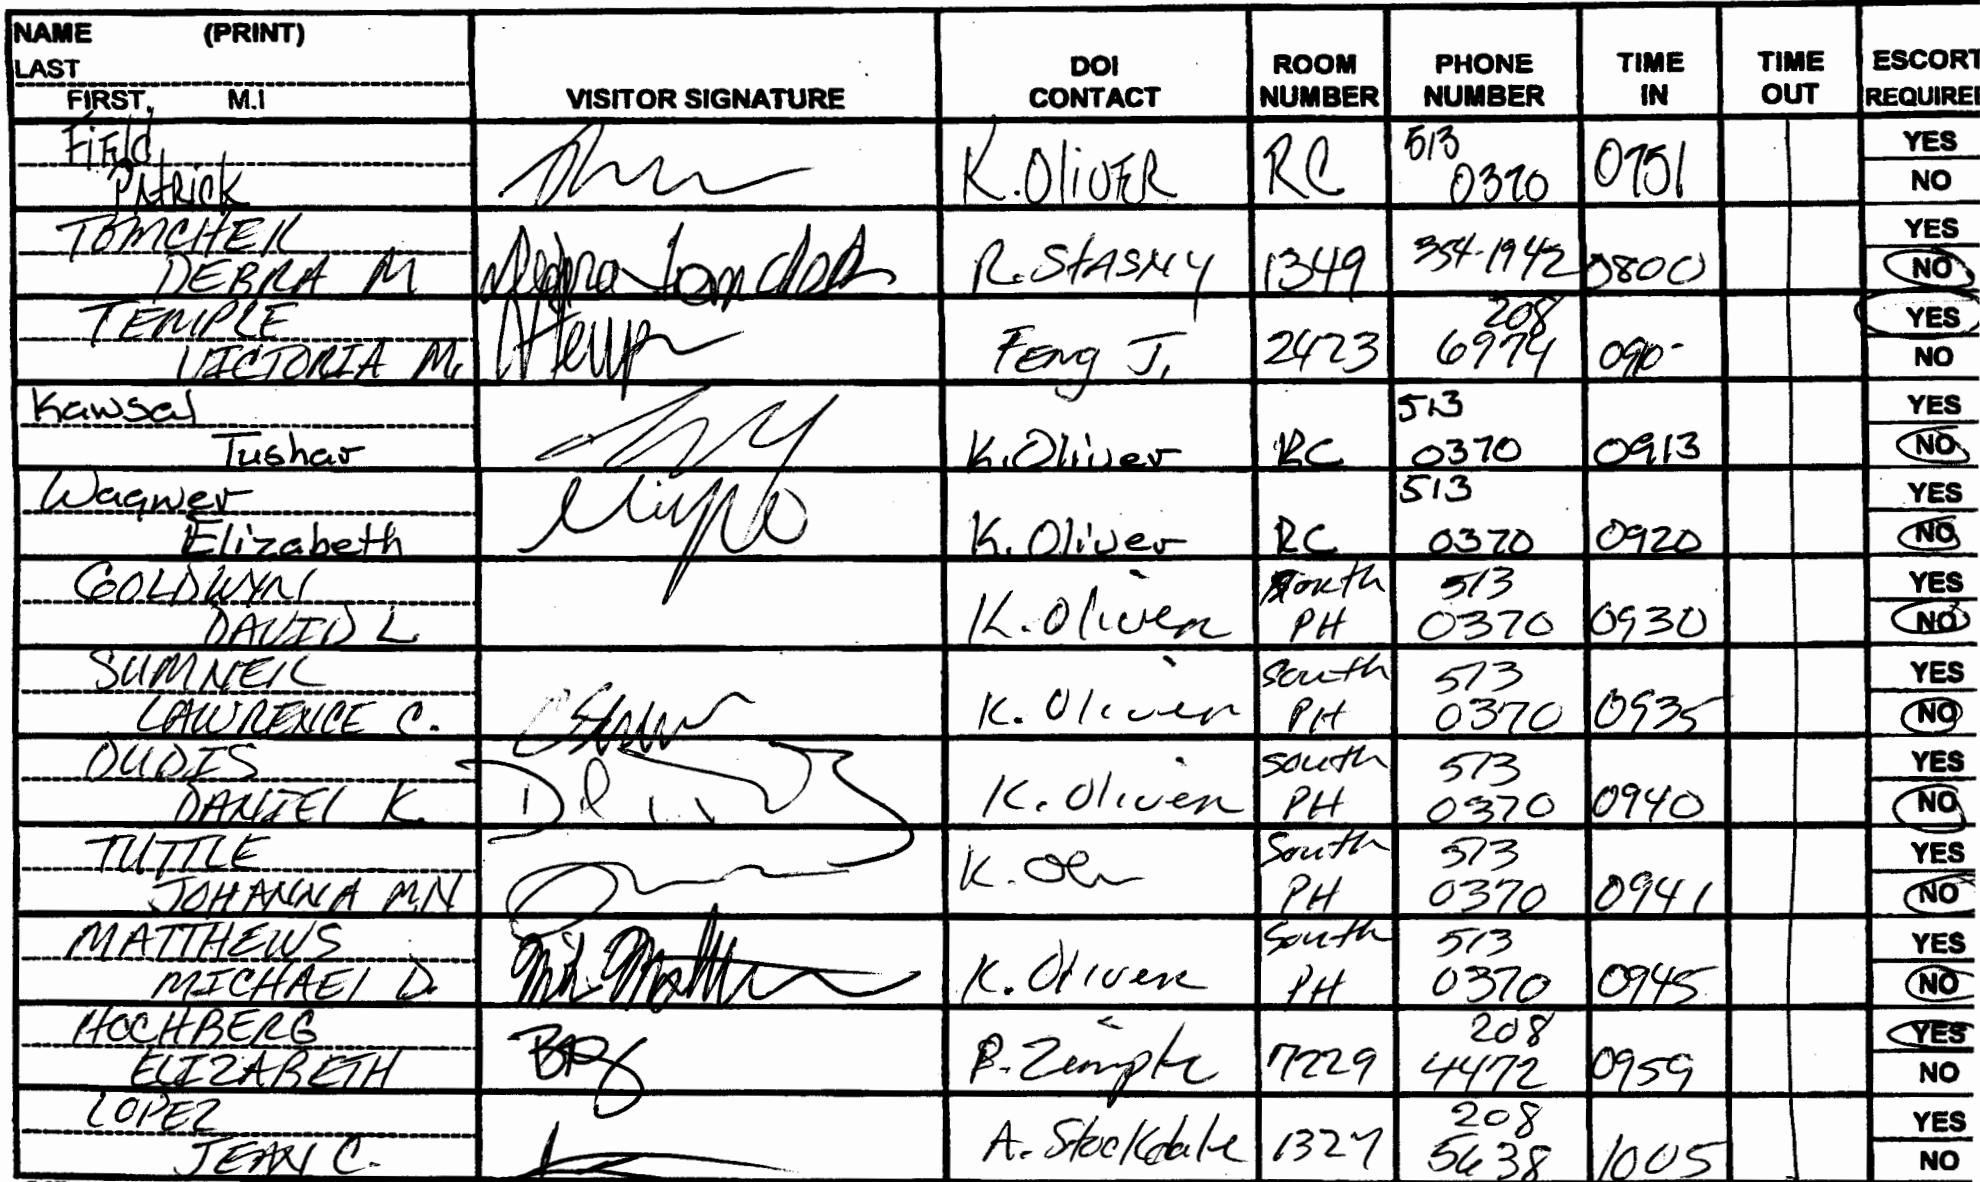 NAME (PRINT)
LAST
FIRST, M.I
VISITOR SIGNATURE
DOI CONTACT
ROOM NUMBER
PHONE NUMBER
TIME IN
TIME OUT
ESCORT REQUIRED
Field Patrick K. Oliver RC 513 0370 0751 YES NO
TOMCHEK DEBRA M R. STASNY 1349 354-1942 0800 YES NO
TEMPLE VICTORIA M. Feng J. 2473 208 6974 YES NO
Kawsal Tushar K. Oliver RC 513 0370 0913 YES NO
Wagner Elizabeth K. Oliver RC 513 0370 0920 YES NO
GOLDWYN DAVID L K. Oliver South PH 513 0370 0930 YES NO
SUMNER LAWRENCE C. K. Oliver South PH 513 0370 0935 YES NO
DUDIS DANIEL K. K. Oliver South PH 513 0370 0940 YES NO
TUTTLE JOHANNA M.N K. South PH 513 0370 0941 YES NO
MATTHEWS MICHAEL D. K. Oliver South PH 513 0370 0945 YES NO
HOCHBERG ELIZABETH B. Zempke 7229 208 4472 0959 YES NO
LOPEZ JEAN C. A. Stockdale 1327 208 5638 1005 YES NO